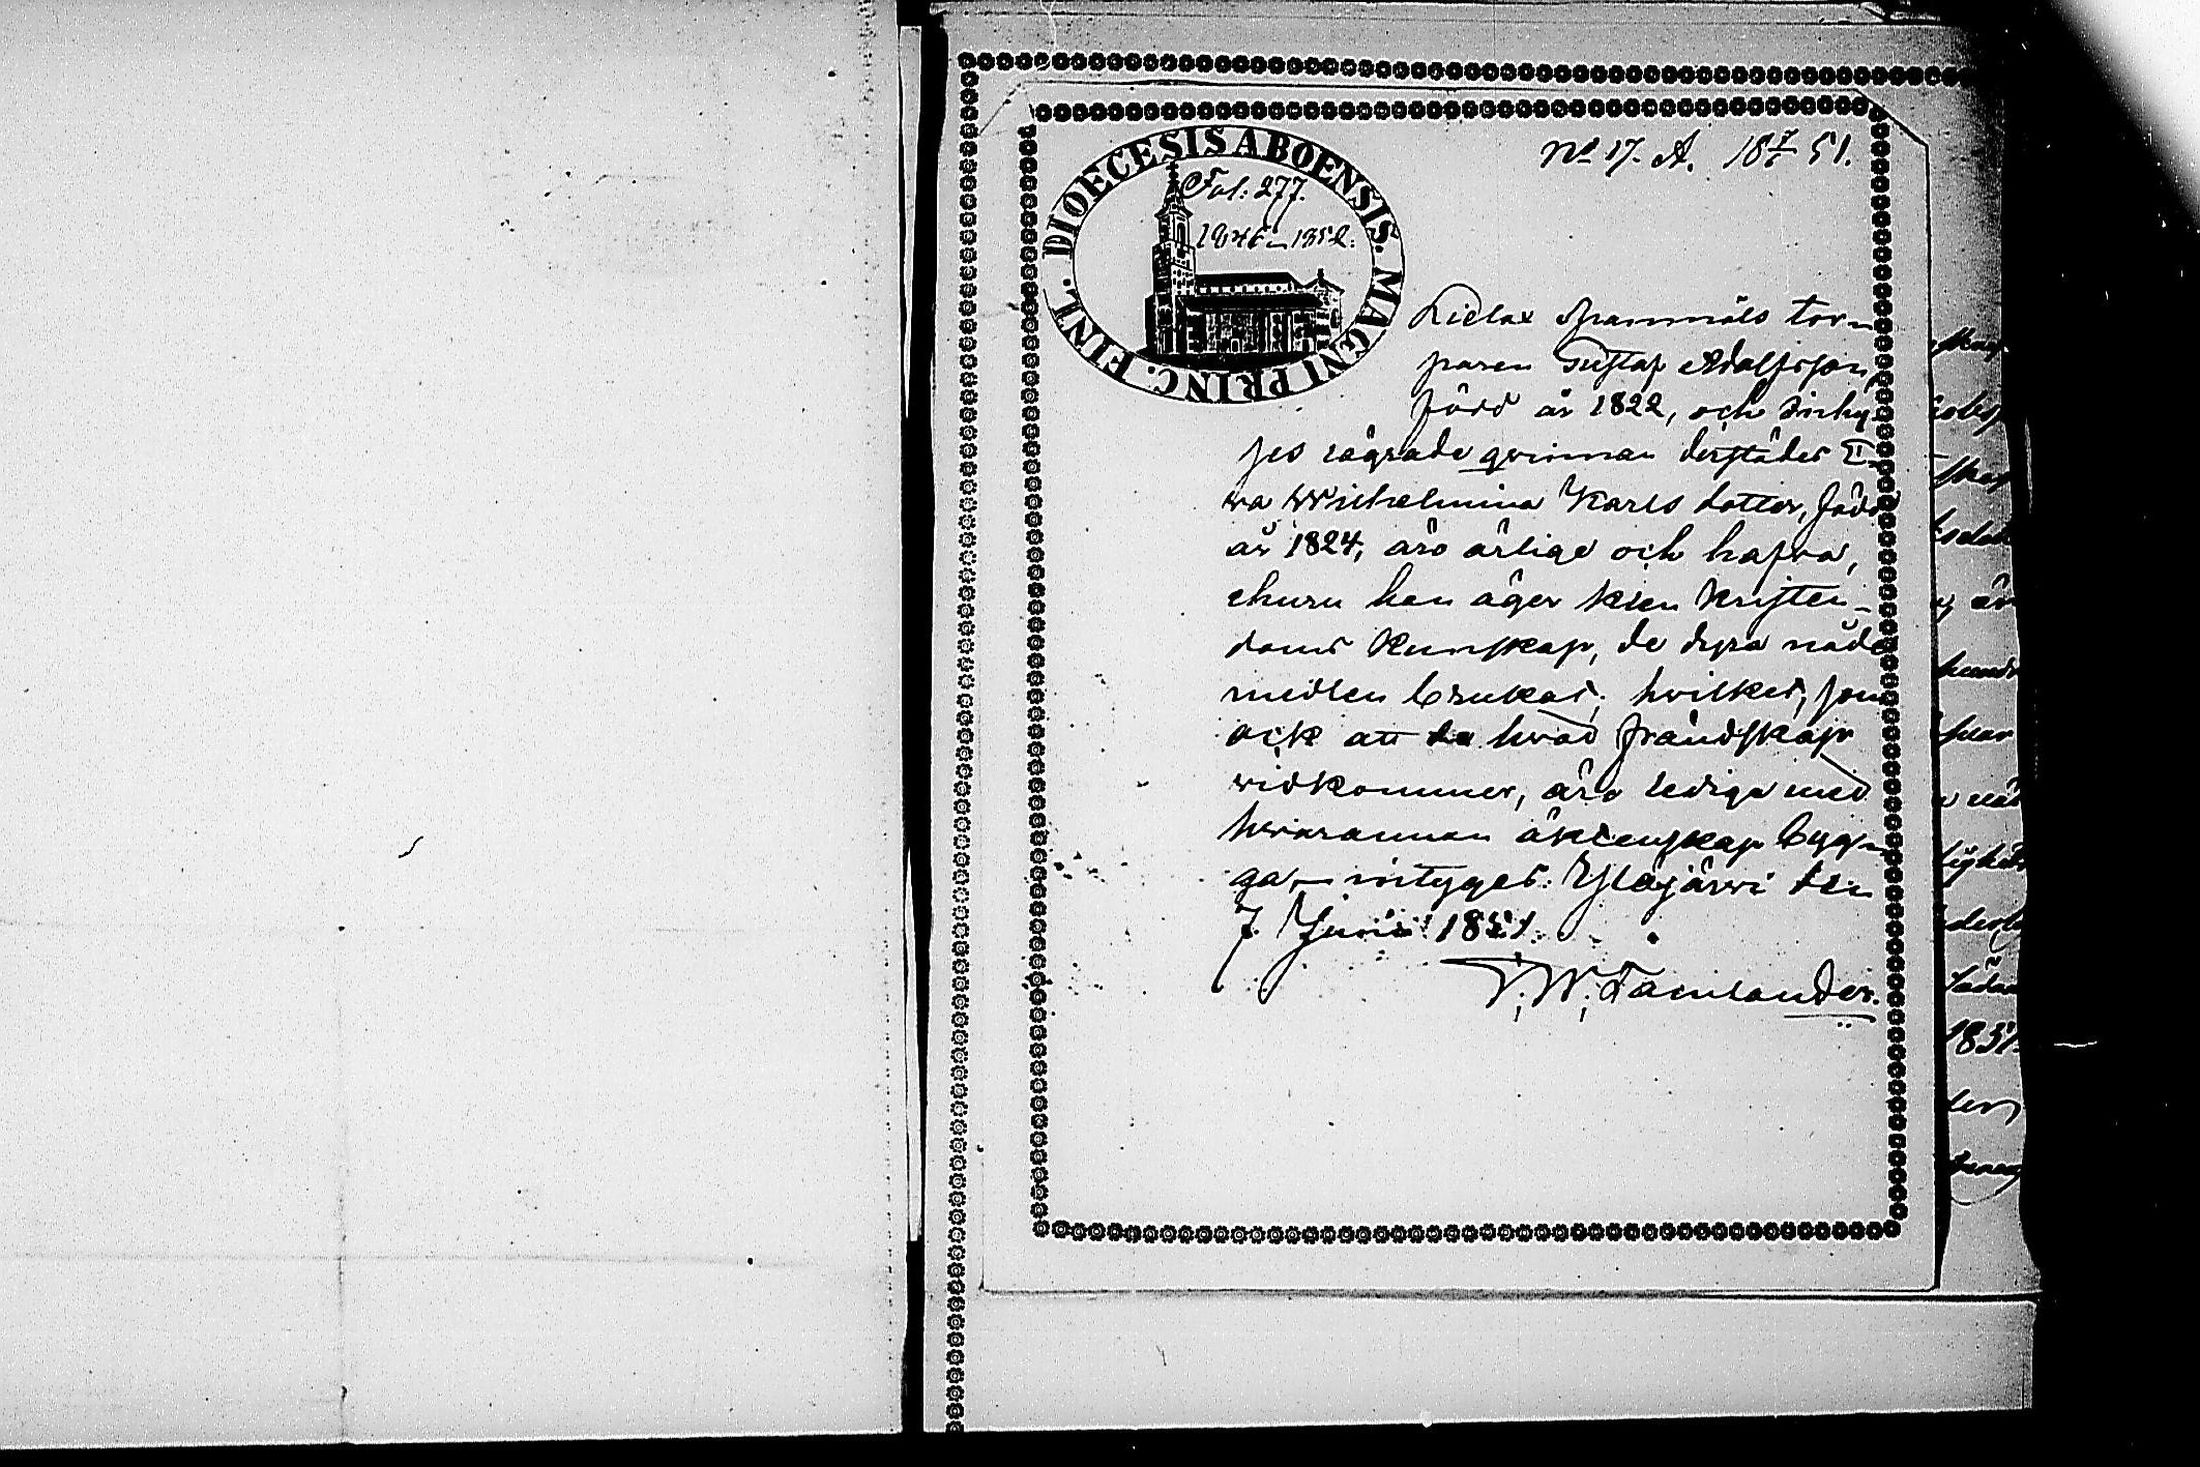 No 17. A. 18 7/6 51.
DIOECESIS ABOENSIS. MAGNI PRINC. FINL.
Fol: 277.
1846-1852.
Tor-
paren Gustaf Adolfsson,
född år 1822, och Inhy-
ses lägrade qvinnan derstädes E-
va Wilhelmina Karls dotter, född
år 1824, äro ärlige och hafva,
ehuru han äger klen Kristen-
doms Kunskap, de dyra nåde
medlen brukat; hvilket, som
ock att hvad frändskap
vidkommer, äro lediga med
hvarannan äktenskap bygg-
ga, intyges: Ylöjärvi den
7 Junii 1851.